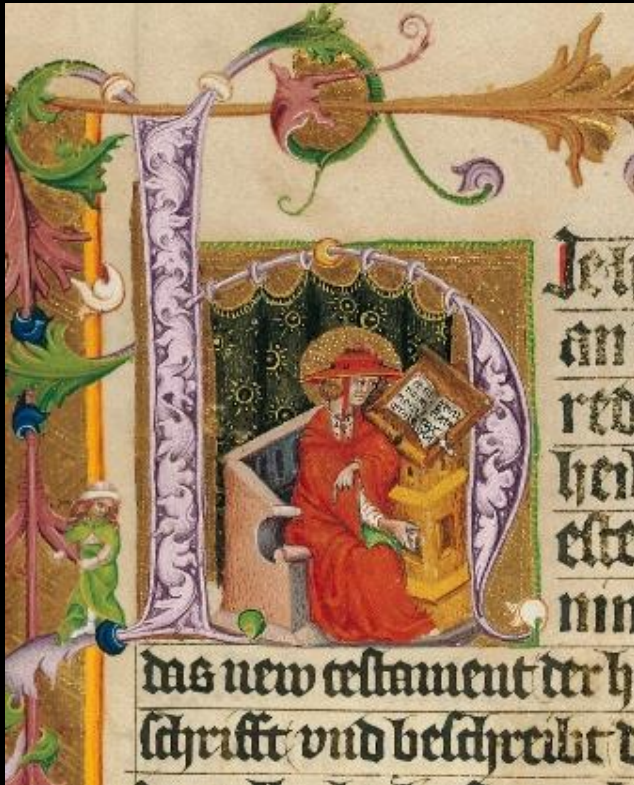 HJeh
an
red
heil
eſte
das new teſtament der h
ſchrifft vnd beſchreibt d